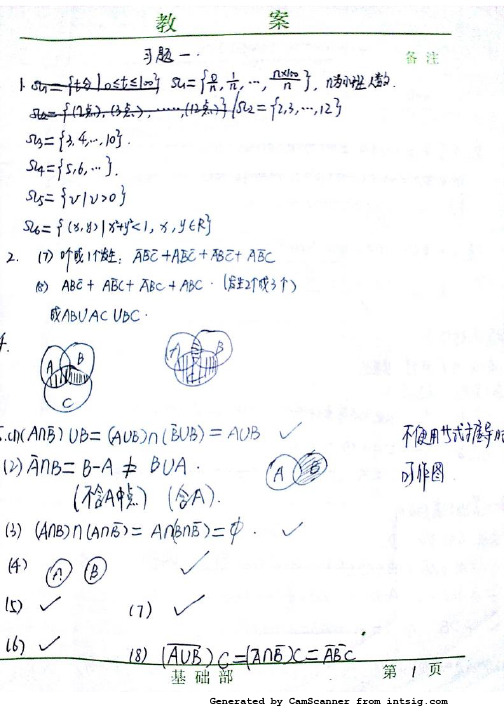 教 案
习题一.
备 注
1. Ω₁ = {t分 | 0≤t≤100} Ω₁ = {0/n, 1/n, ⋯, n×100/n}, n为小班人数.
Ω₂ = {(2点), (3点), ⋯⋯, (12点)} Ω₂ = {2,3,⋯,12}
Ω₃ = {3,4,⋯,10}.
Ω₄ = {5,6,⋯}.
Ω₅ = {v | v>0}
Ω₆ = {(x,y) | x²+y²<1, x,y∈R}
2. (7) 0个或1个发生: A̅B̅C̅ + AB̅C̅ + A̅BC̅ + A̅B̅C
(8) ABC̅ + AB̅C + A̅BC + ABC. (发生2个或3个)
或AB∪AC∪BC.
4.
A B C
A B C
5. (1) (A∩B̅)∪B = (A∪B)∩(B̅∪B) = A∪B ✓
不使用 公式推导时
(2) A̅∩B = B-A ≠ B∪A.
A B
可作图.
(不含A中点) (含A).
(3) (A∩B)∩(A∩B̅) = A∩(B∩B̅) = Φ. ✓
(4) A B ✓
(5) ✓ (7) ✓
(6) ✓ (8) (A∪B)̅ C = (A̅∩B̅)C = A̅B̅C
基础部
第 1 页
Generated by CamScanner from intsig.com